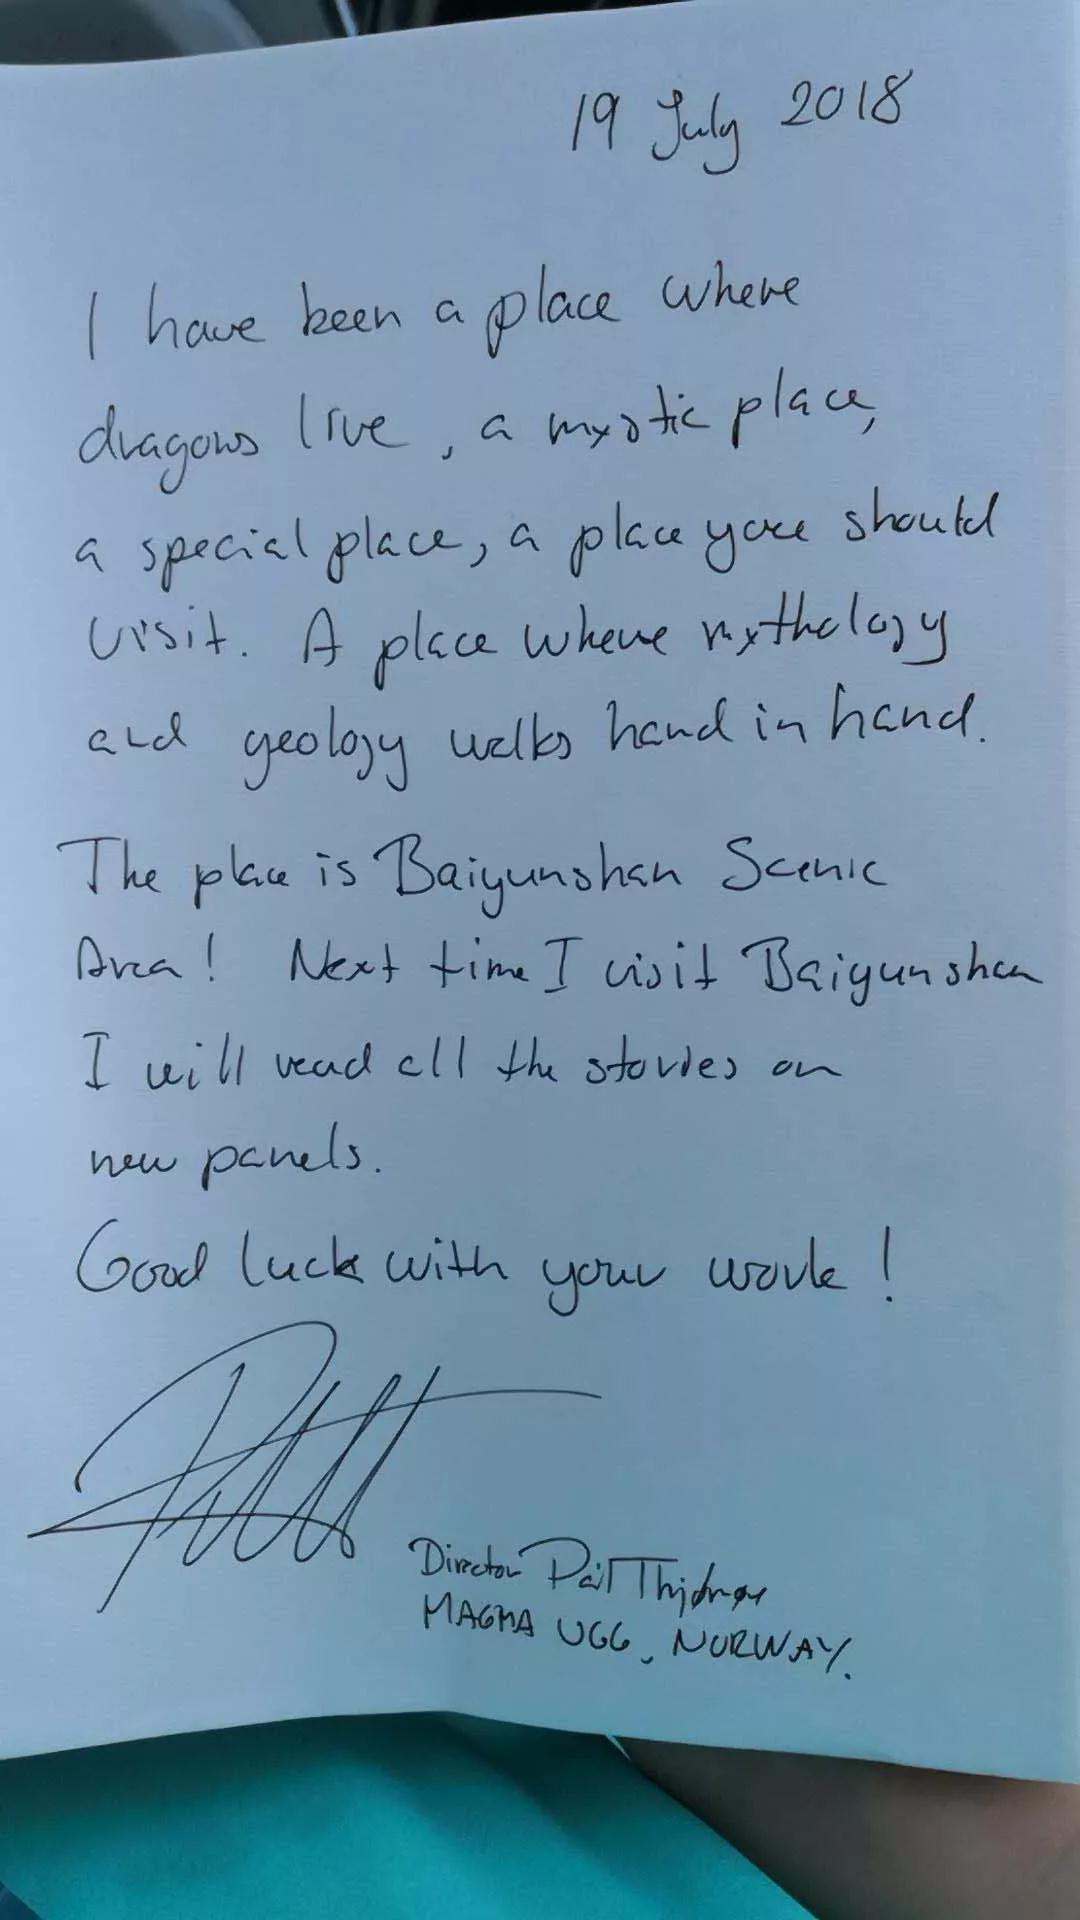 19 July 2018
I have been a place where
dragons live, a mystic place,
a special place, a place you should
visit. A place where mythology
and geology walks hand in hand.
The place is Baiyunshan Scenic
Area! Next time I visit Baiyunshan
I will read all the stories on
new panels.
Good luck with your work!
Director Pål
MAGMA UGG, NORWAY.